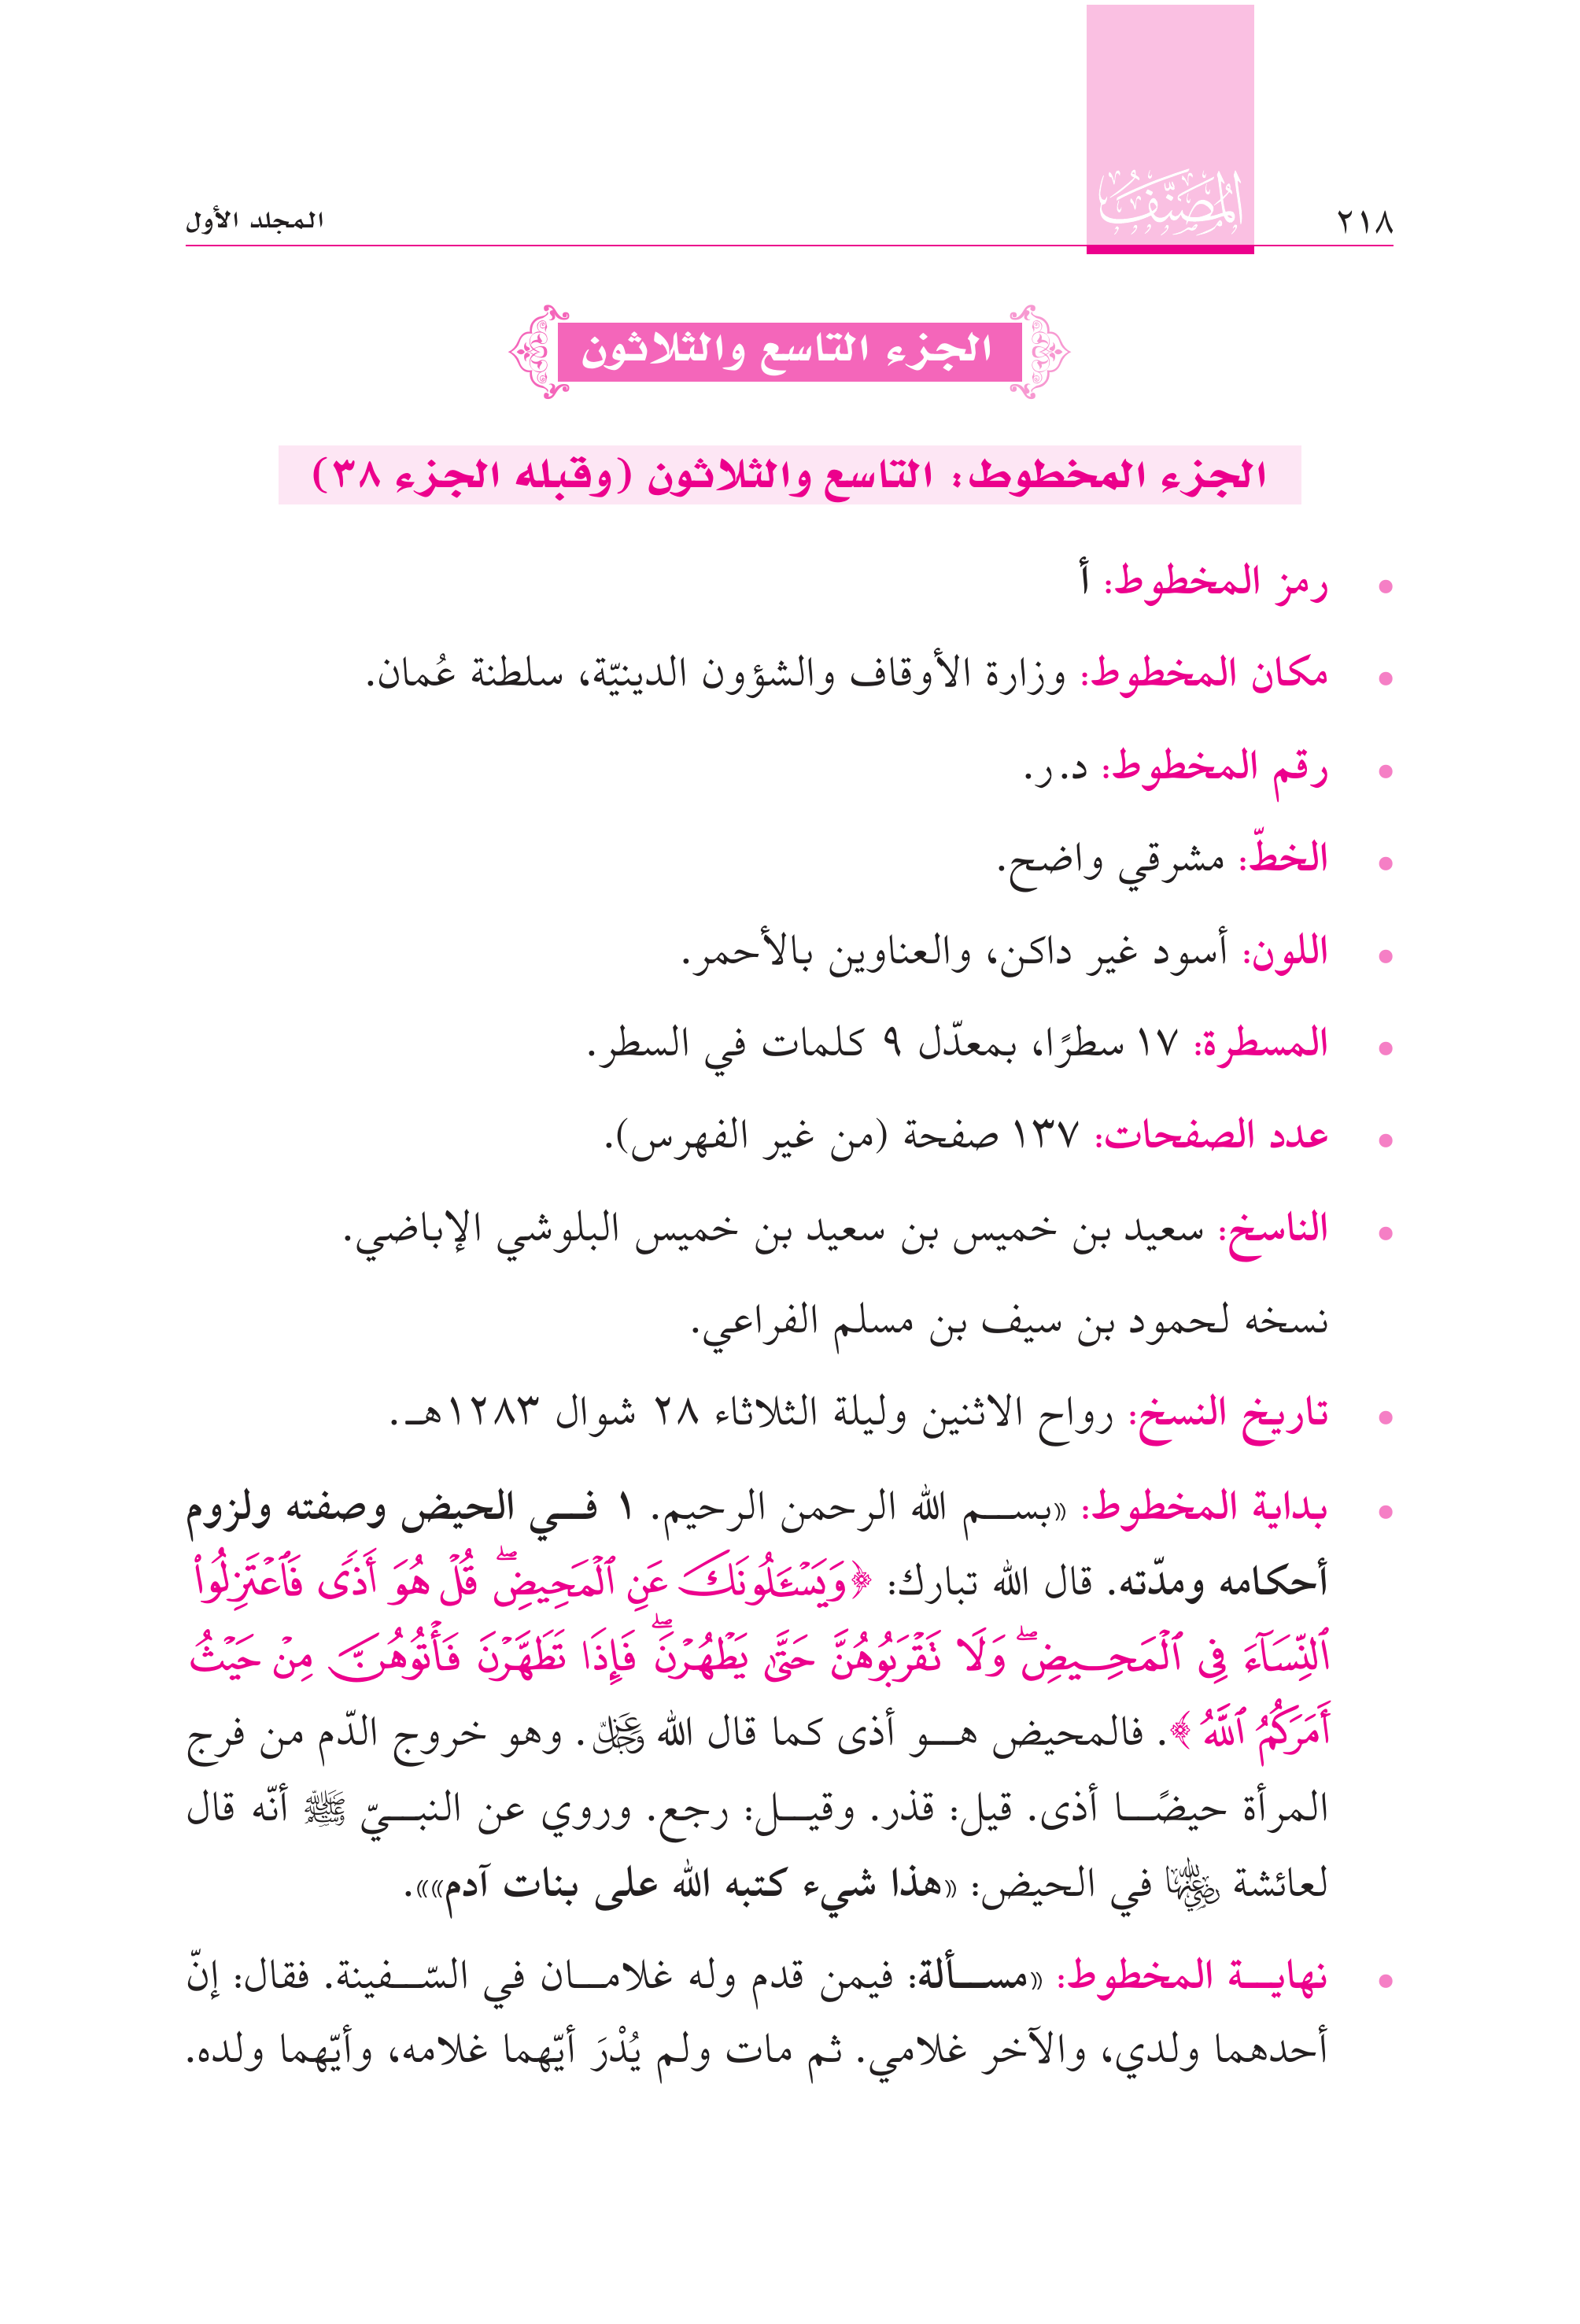 ٢١٨
المصنف
المجلد الأول
الجزء التاسع والثلاثون
الجزء المخطوط: التاسع والثلاثون (وقبله الجزء ٣٨)
• رمز المخطوط: أ
• مكان المخطوط: وزارة الأوقاف والشؤون الدينيّة، سلطنة عُمان.
• رقم المخطوط: د.ر.
• الخطّ: مشرقي واضح.
• اللون: أسود غير داكن، والعناوين بالأحمر.
• المسطرة: ١٧ سطرًا، بمعدّل ٩ كلمات في السطر.
• عدد الصفحات: ١٣٧ صفحة (من غير الفهرس).
• الناسخ: سعيد بن خميس بن سعيد بن خميس البلوشي الإباضي.
نسخه لحمود بن سيف بن مسلم الفراعي.
• تاريخ النسخ: رواح الاثنين وليلة الثلاثاء ٢٨ شوال ١٢٨٣هـ.
• بداية المخطوط: «بسم الله الرحمن الرحيم. ١ في الحيض وصفته ولزوم
أحكامه ومدّته. قال الله تبارك: ﴿وَيَسْـَٔلُونَكَ عَنِ ٱلْمَحِيضِۖ قُلْ هُوَ أَذًى فَٱعْتَزِلُوا۟
ٱلنِّسَآءَ فِى ٱلْمَحِيضِۖ وَلَا تَقْرَبُوهُنَّ حَتَّىٰ يَطْهُرْنَۖ فَإِذَا تَطَهَّرْنَ فَأْتُوهُنَّ مِنْ حَيْثُ
أَمَرَكُمُ ٱللَّهُ﴾. فالمحيض هو أذى كما قال الله عز وجل. وهو خروج الدّم من فرج
المرأة حيضًا أذى. قيل: قذر. وقيل: رجع. وروي عن النبيّ ﷺ أنّه قال
لعائشة رضي الله عنها في الحيض: «هذا شيء كتبه الله على بنات آدم»».
• نهاية المخطوط: «مسألة: فيمن قدم وله غلامان في السّفينة. فقال: إنّ
أحدهما ولدي، والآخر غلامي. ثم مات ولم يُدْرَ أيّهما غلامه، وأيّهما ولده.